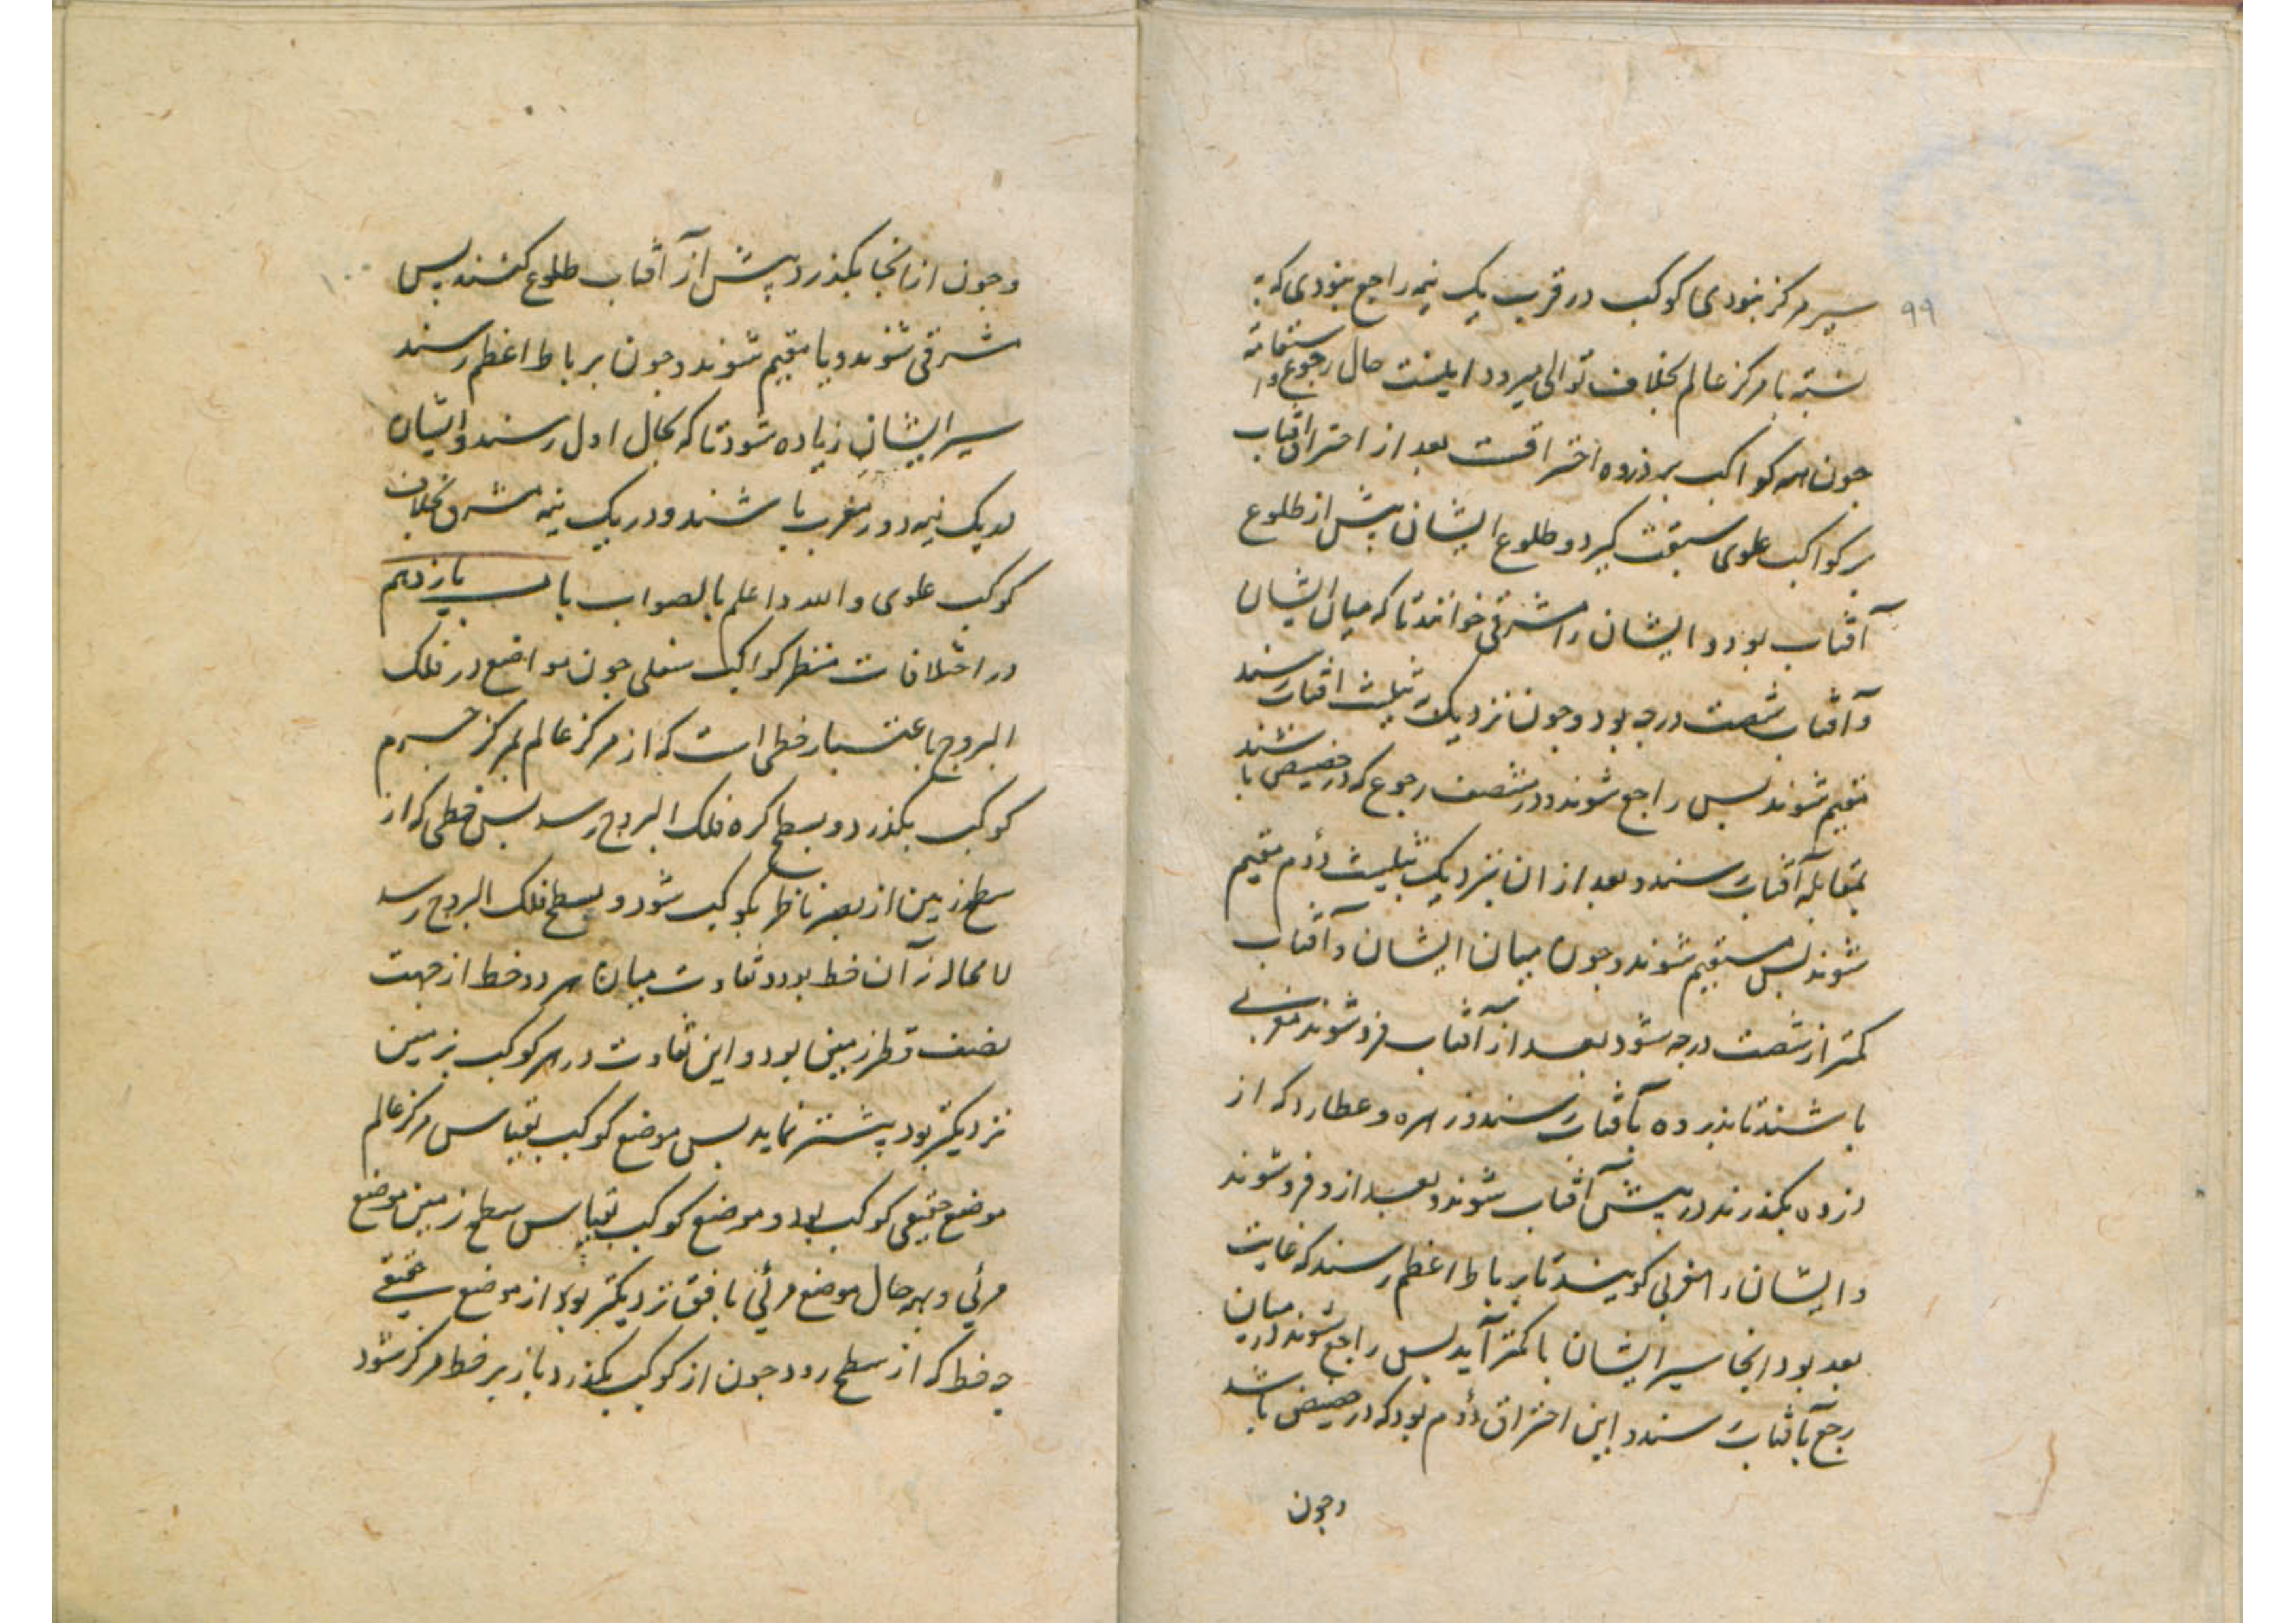 ۹۹
سیر مرکز بنودی کوکب در قرب یک نیمه راجع بنودی که به
نسبة با مرکز عالم بخلاف توالی میرود اینست حال رجوع و استقامة
جون همه کواکب بر ذروه احتراقست بعد از احتراق آفتاب
بر کواکب علوی سبقت کیرد و طلوع ایشان پیش از طلوع
آفتاب بود و ایشان را مشرقی خوانند تا که میان ایشان
و آفتاب شصت درجه بود و جون نزدیک تثلیث آفتاب رسند
مقیم شوند پس راجع شوند و در منتصف رجوع که در حضیض باشند
بمقابله آفتاب رسند و بعد از ان بنزدیک تثلیث دوم مقیم
شوند پس مستقیم شوند و جون میان ایشان و آفتاب
کمتر از شصت درجه شود بعد از آفتاب فرو شوند مغربی
باشند تا بذروه بآفتاب رسند و زهره و عطارد که از
ذروه بکذرند در پیش آفتاب شوند و بعد ازو فرو شوند
و ایشان را مغربی کویند تا برباط اعظم رسند که غایت
بعد بود انجا سیر ایشان با کمتر آید پس راجع شوند در میان
رجع بآفتاب رسند و این احتراق دوم بود که در حضیض باشد
وجون
۱۰۰
وجون ازانجا بکذرد پیش از آفتاب طلوع کنند پس
شرقی شوند و یا مقیم شوند و جون برباط اعظم رسند
سیر ایشان زیاده شود تا که بحال اول رسند و ایشان
در یک نیمه دور مغرب باشند و در یک نیمه مشرق بخلاف
کوکب علوی والله واعلم بالصواب باب یازدهم
در اختلافات منظر کواکب سفلی جون مواضع در فلک
البروج باعتبار خطی است که از مرکز عالم بمرکز جرم
کوکب بکذرد و بسطح کره فلک البروج رسد پس خطی که از
سطح زمین از بصر ناظر بکوکب شود و بسطح فلک البروج رسد
لا محاله نه آن خط بود و تفاوت میان هر دو خط از جهت
نصف قطر زمین بود و این تفاوت در هر کوکب بزمین
نزدیکتر بود بیشتر نماید پس موضع کوکب بقیاس مرکز عالم
موضع حقیقی کوکب بود و موضع کوکب بقیاس سطح زمین موضع
مرئی و بهر حال موضع مرئی بافق نزدیکتر بود از موضع حقیقی
جه خط که از سطح رود جون از کوکب بکذرد باز بر خط مرکز شود